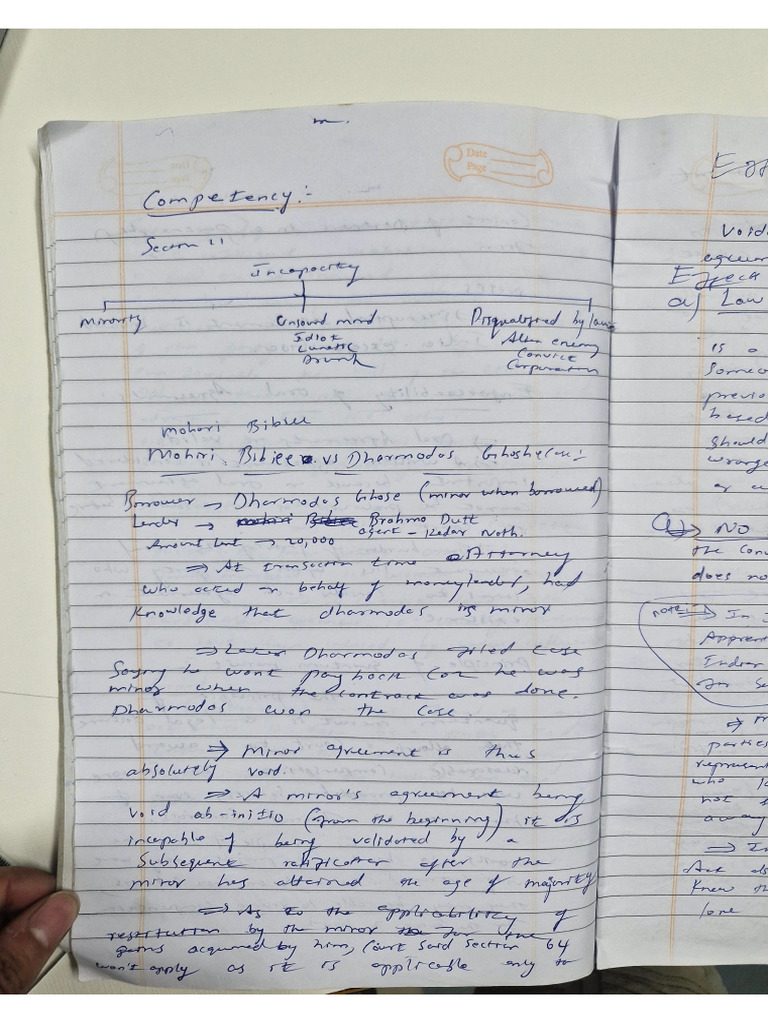 Date
Page
Competency :-
Section 11
Incapacity
Minority Unsound mind Disqualified by law
Idiot Alien enemy
Lunatic Convict
Drunk Corporation
Mohori Bibiee
Mohiri Bibiee vs Dharmodas Ghoshe case :-
Borrower → Dharmodas Ghose (minor when borrowed)
Lender → Brahmo Dutt
agent - Kedar Noth.
Amount lent → 20,000
⇒ At transaction time Attorney
who acted on behalf of moneylender, had
knowledge that dharmodas is minor
⇒ Later Dharmodas filed case
Saying he wont payback coz he was
minor when the contract was done.
Dharmodas won the case
⇒ Minor agreement is thus
absolutely void.
⇒ A minor's agreement being
void ab-initio (from the beginning) it is
incapable of being validated by a
Subsequent ratification after the
minor has attained the age of majority
⇒ As to the applicability of
restitution by the minor for the
gains acquired by him, Court Said Section 64
won't apply as it is applicable only to
void
agreem
Effect
a) Law
is a
Someo
previo
based
should
wrong
NO
the Con
does no
note: ⇒ In I
Appren
Indian
parties
represent
who
not
away
⇒ I
Act
Knew th